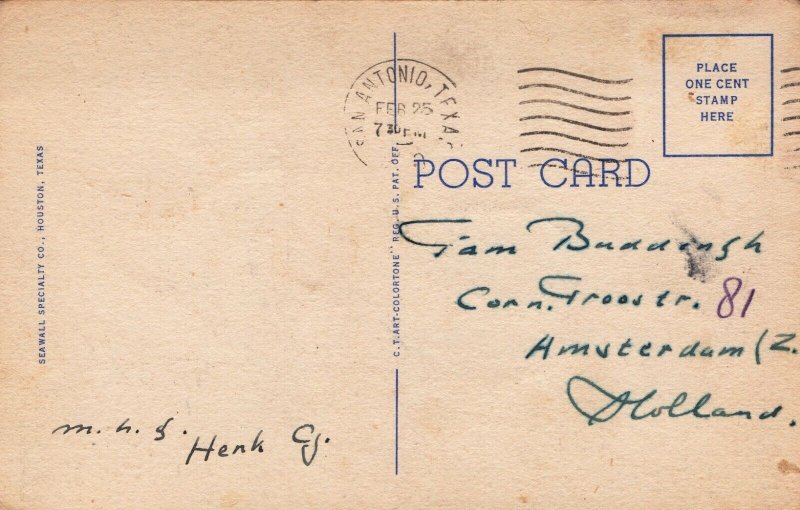 SAN ANTONIO, TEXAS
FEB 25
7 30 PM
PLACE
ONE CENT
STAMP
HERE
POST CARD
SEAWALL SPECIALTY CO., HOUSTON, TEXAS
C.T. ART-COLORTONE" REG. U.S. PAT. OFF.
Tam Buddingh
Corn. Troostr. 81
Amsterdam (Z.
Holland.
m. h. g.
Henk